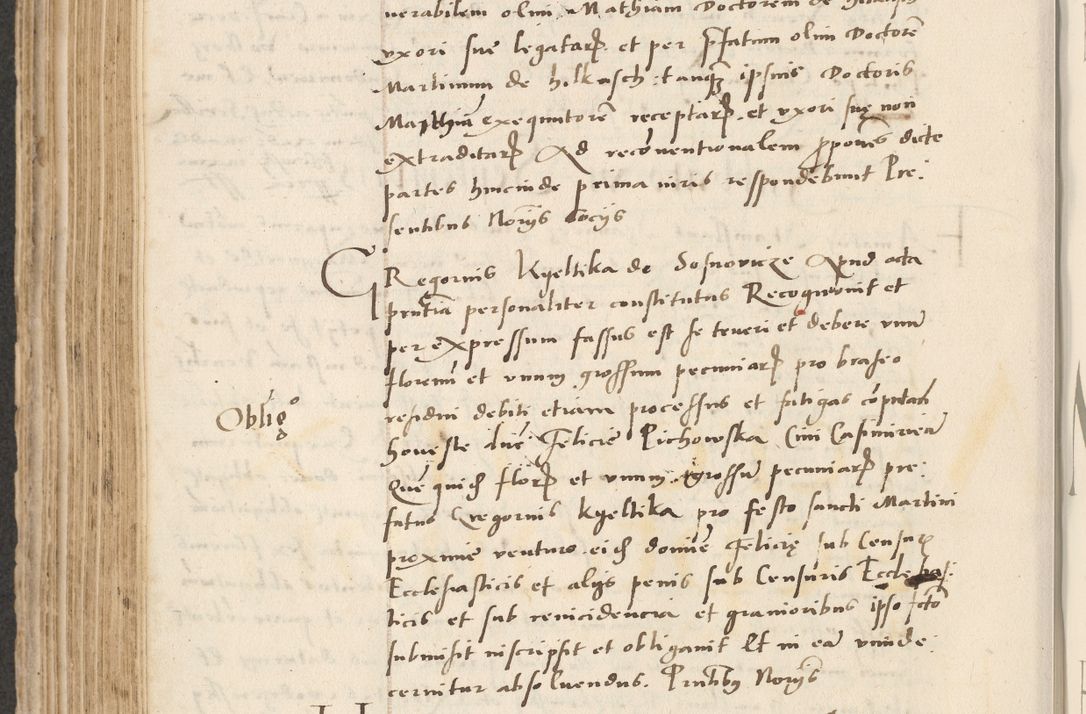 nerabilem olim Mathiam Doctorem de
vxori sue legatarꝝ et per p̄fatum olim Doctorē
Martinum de hilkasch tanqꝫ ipsius Doctoris
Matthiā exequutorē receptarꝝ et vxori suę non
extraditarꝝ Ad reconventionalem ꝓponēs dicte
partes hincinde prima iuris respondebunt Pre:
sentibus Norijs Socijs
GRegorius Kyeltika de Sosnovicze Apud acta
pñtia personaliter constitutus Recognovit et
per expressum fassus est se teneri et debere vnū
florenū et vnum grossum pecuniarꝝ pro braseo
residui debiti etiam processus et fatigas cōputatis
Oblig°
honeste dn̄e Felicie Pichowska Ciui Casimirieñ
Quē quidē florꝝ et vnum grossū pecuniarꝝ pre:
fatus Gregorius Kyeltika pro festo sancti Martini
proxime venturo eidē domine Felicię sub Censuris
Ecclesiasticis et alijs penis sub Censuris Ecclesias:
ticis et sub reincidencia et grauioribus ipso fcto
submisit inscripsit et obligauit Et in eā vnde
cernitur absoluendus. Pñtibus Norijs